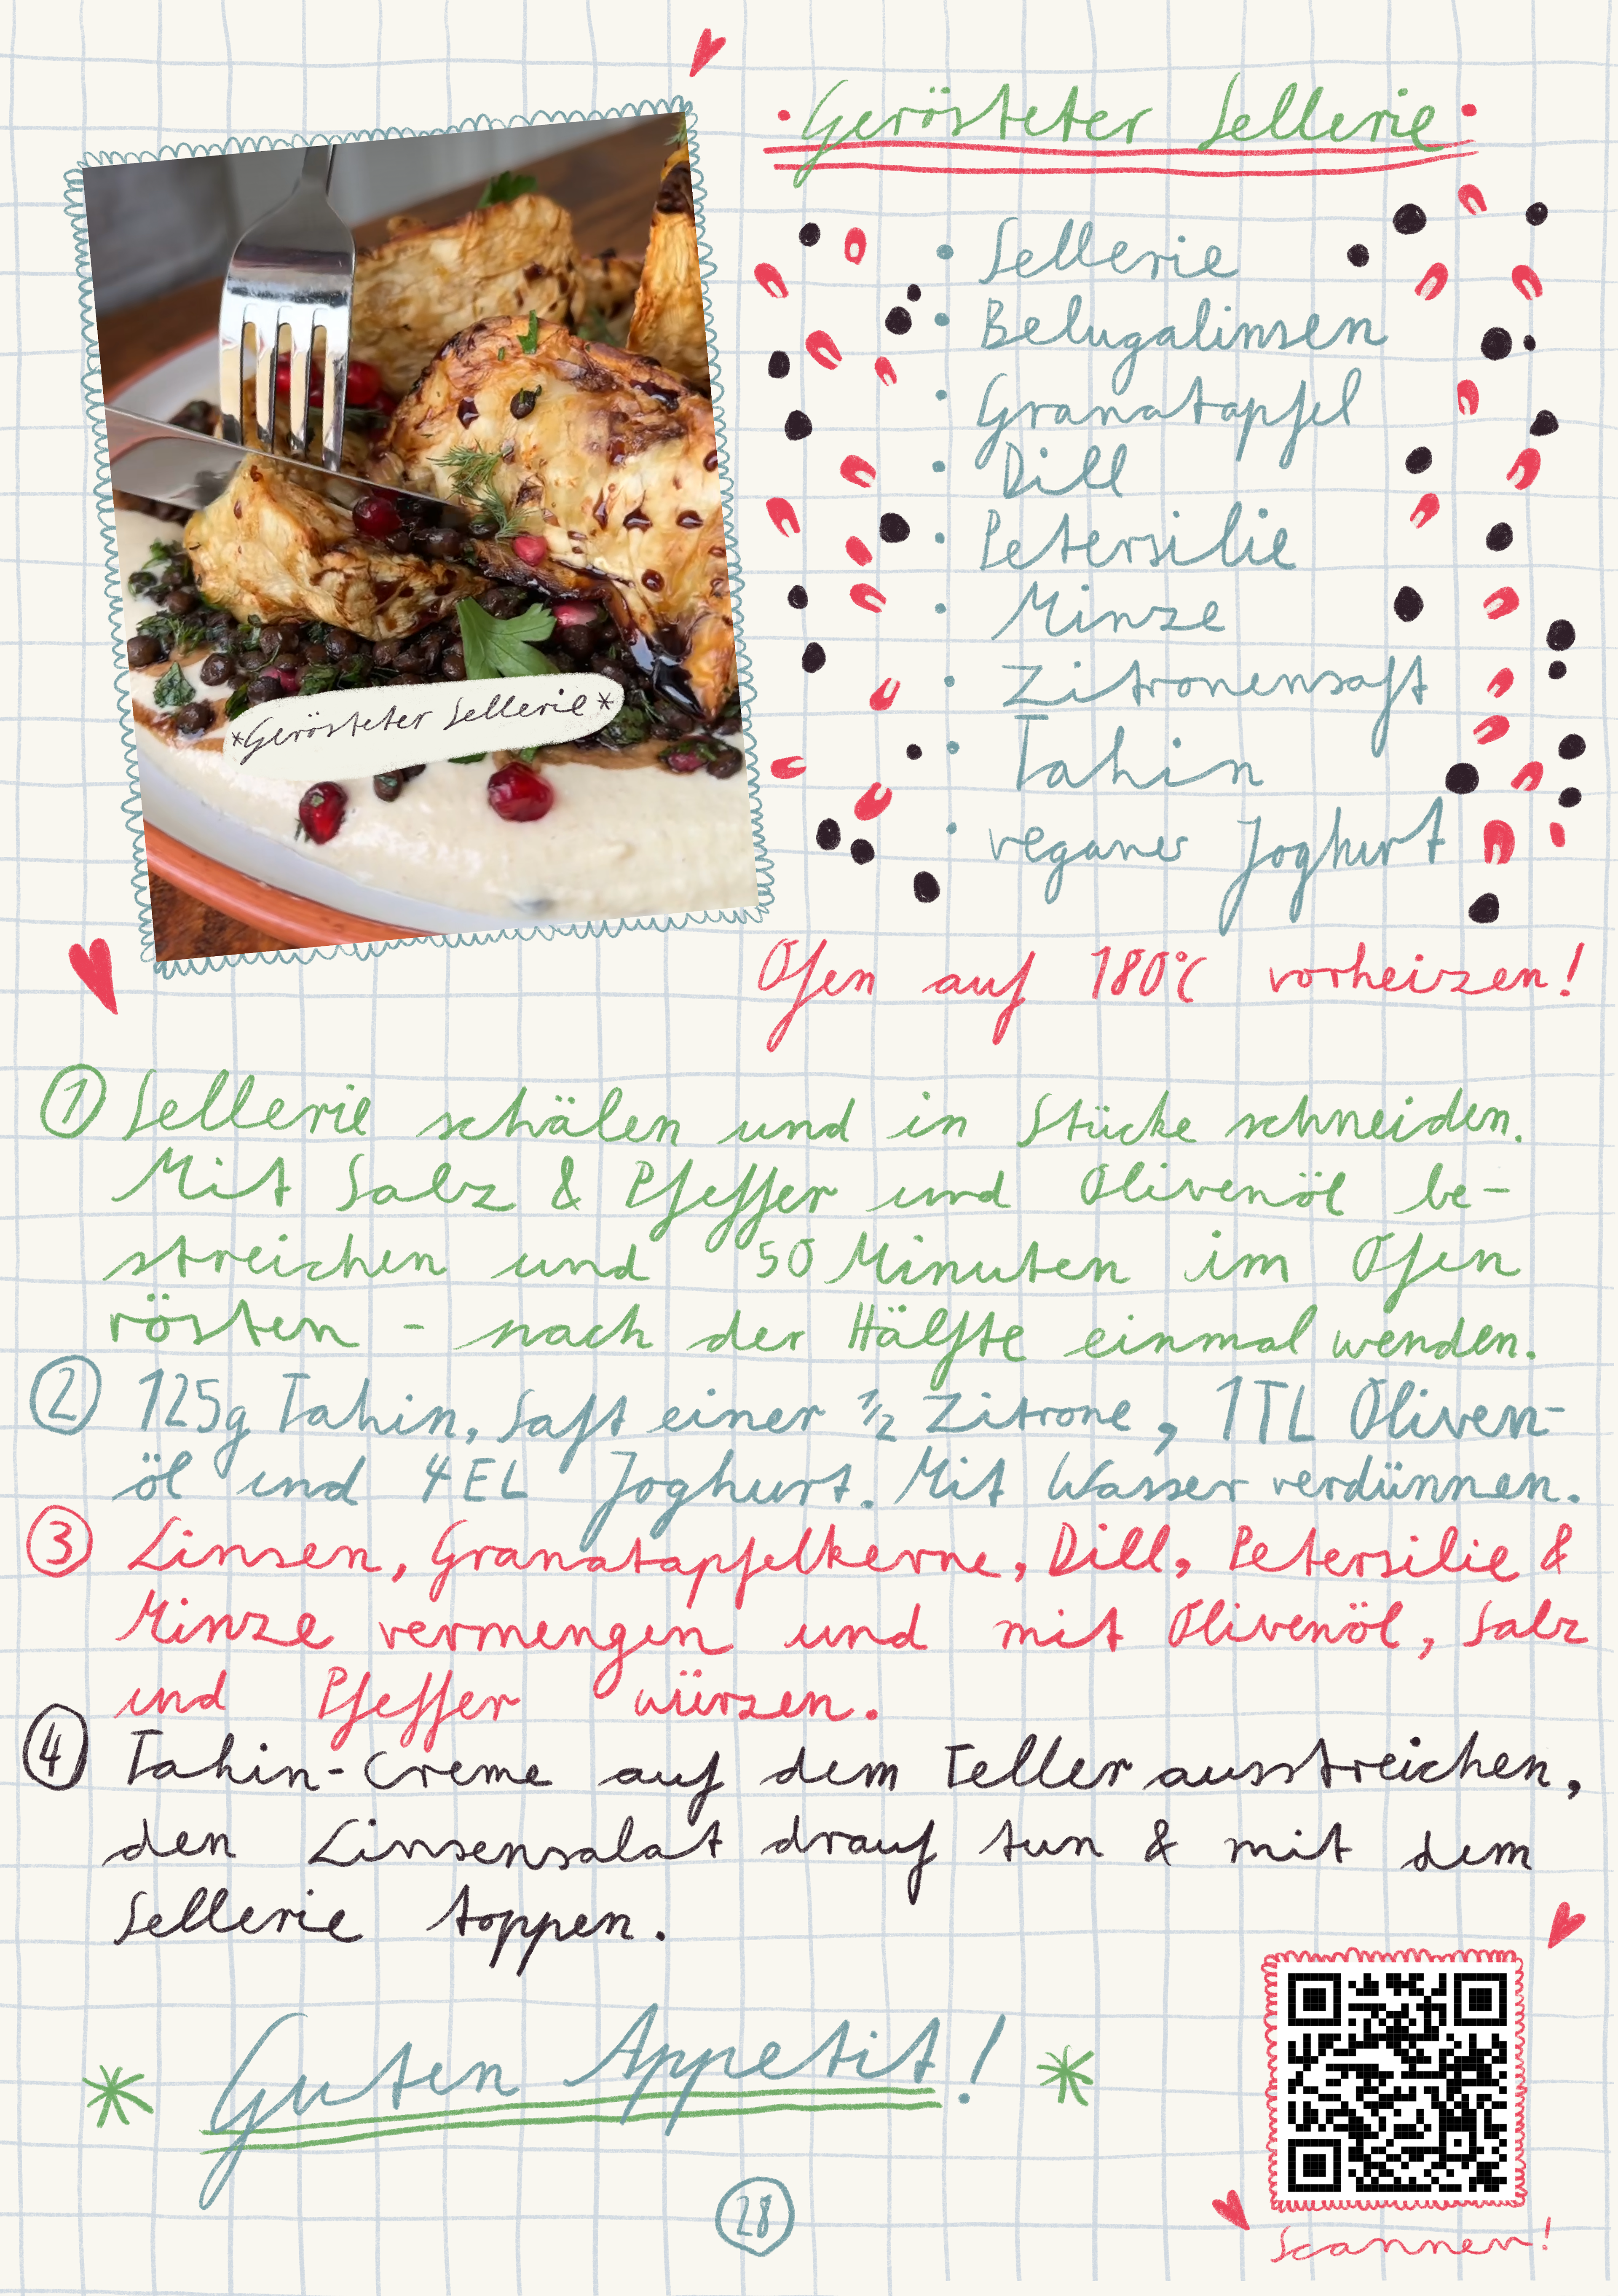 Gerösteter Sellerie
• Sellerie
• Belugalinsen
• Granatapfel
• Dill
• Petersilie
• Minze
• Zitronensaft
• Tahin
• veganes Joghurt
*Gerösteter Sellerie*
Ofen auf 180°C vorheizen!
① Sellerie schälen und in Stücke schneiden.
Mit Salz & Pfeffer und Olivenöl be-
streichen und 50 Minuten im Ofen
rösten - nach der Hälfte einmal wenden.
② 125g Tahin, Saft einer ½ Zitrone, 1TL Oliven-
öl und 4EL Joghurt. Mit Wasser verdünnen.
③ Linsen, Granatapfelkerne, Dill, Petersilie &
Minze vermengen und mit Olivenöl, Salz
und Pfeffer würzen.
④ Tahin-Creme auf dem Teller ausstreichen,
den Linsensalat drauf tun & mit dem
Sellerie toppen.
Guten Appetit!
28
Scannen!